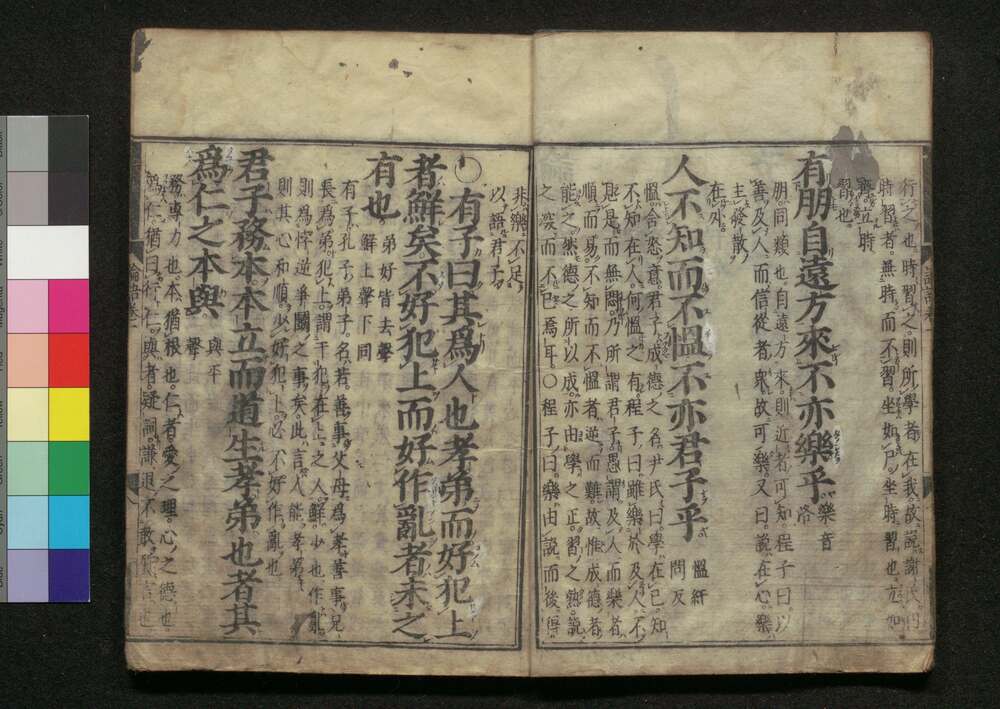 行之也時習之則所學者在我故說謝氏曰
時習者無時而不習坐如尸坐時習也立如
齊立時
習也
有朋自遠方來不亦樂乎 樂音洛
朋同類也自遠方來則近者可知程子曰以
善及人而信從者衆故可樂又曰說在心樂
主發散
在外
人不知而不慍不亦君子乎 慍紆問反
慍含怒意君子成德之名尹氏曰學在己知
不知在人何慍之有程子曰雖樂於及人不
見是而無悶乃所謂君子愚謂及人而樂者
順而易不知而不慍者逆而難故惟成德者
能之然德之所以成亦由學之正習之熟說
之深而不已焉耳○程子曰樂由說而後得
非樂不足
以語君子
○有子曰其爲人也孝弟而好犯上
者鮮矣不好犯上而好作亂者未之
有也 弟好皆去聲鮮上聲下同
有子孔子弟子名若善事父母爲孝善事兄
長爲弟犯上謂干犯在上之人鮮少也作亂
則爲悖逆爭鬪之事矣此言人能孝弟
則其心和順少好犯上必不好作亂也
君子務本本立而道生孝弟也者其
爲仁之本與 與平聲
務專力也本猶根也仁者愛之理心之德也
爲仁猶曰行仁與者疑詞謙退不敢質言也
論語卷一